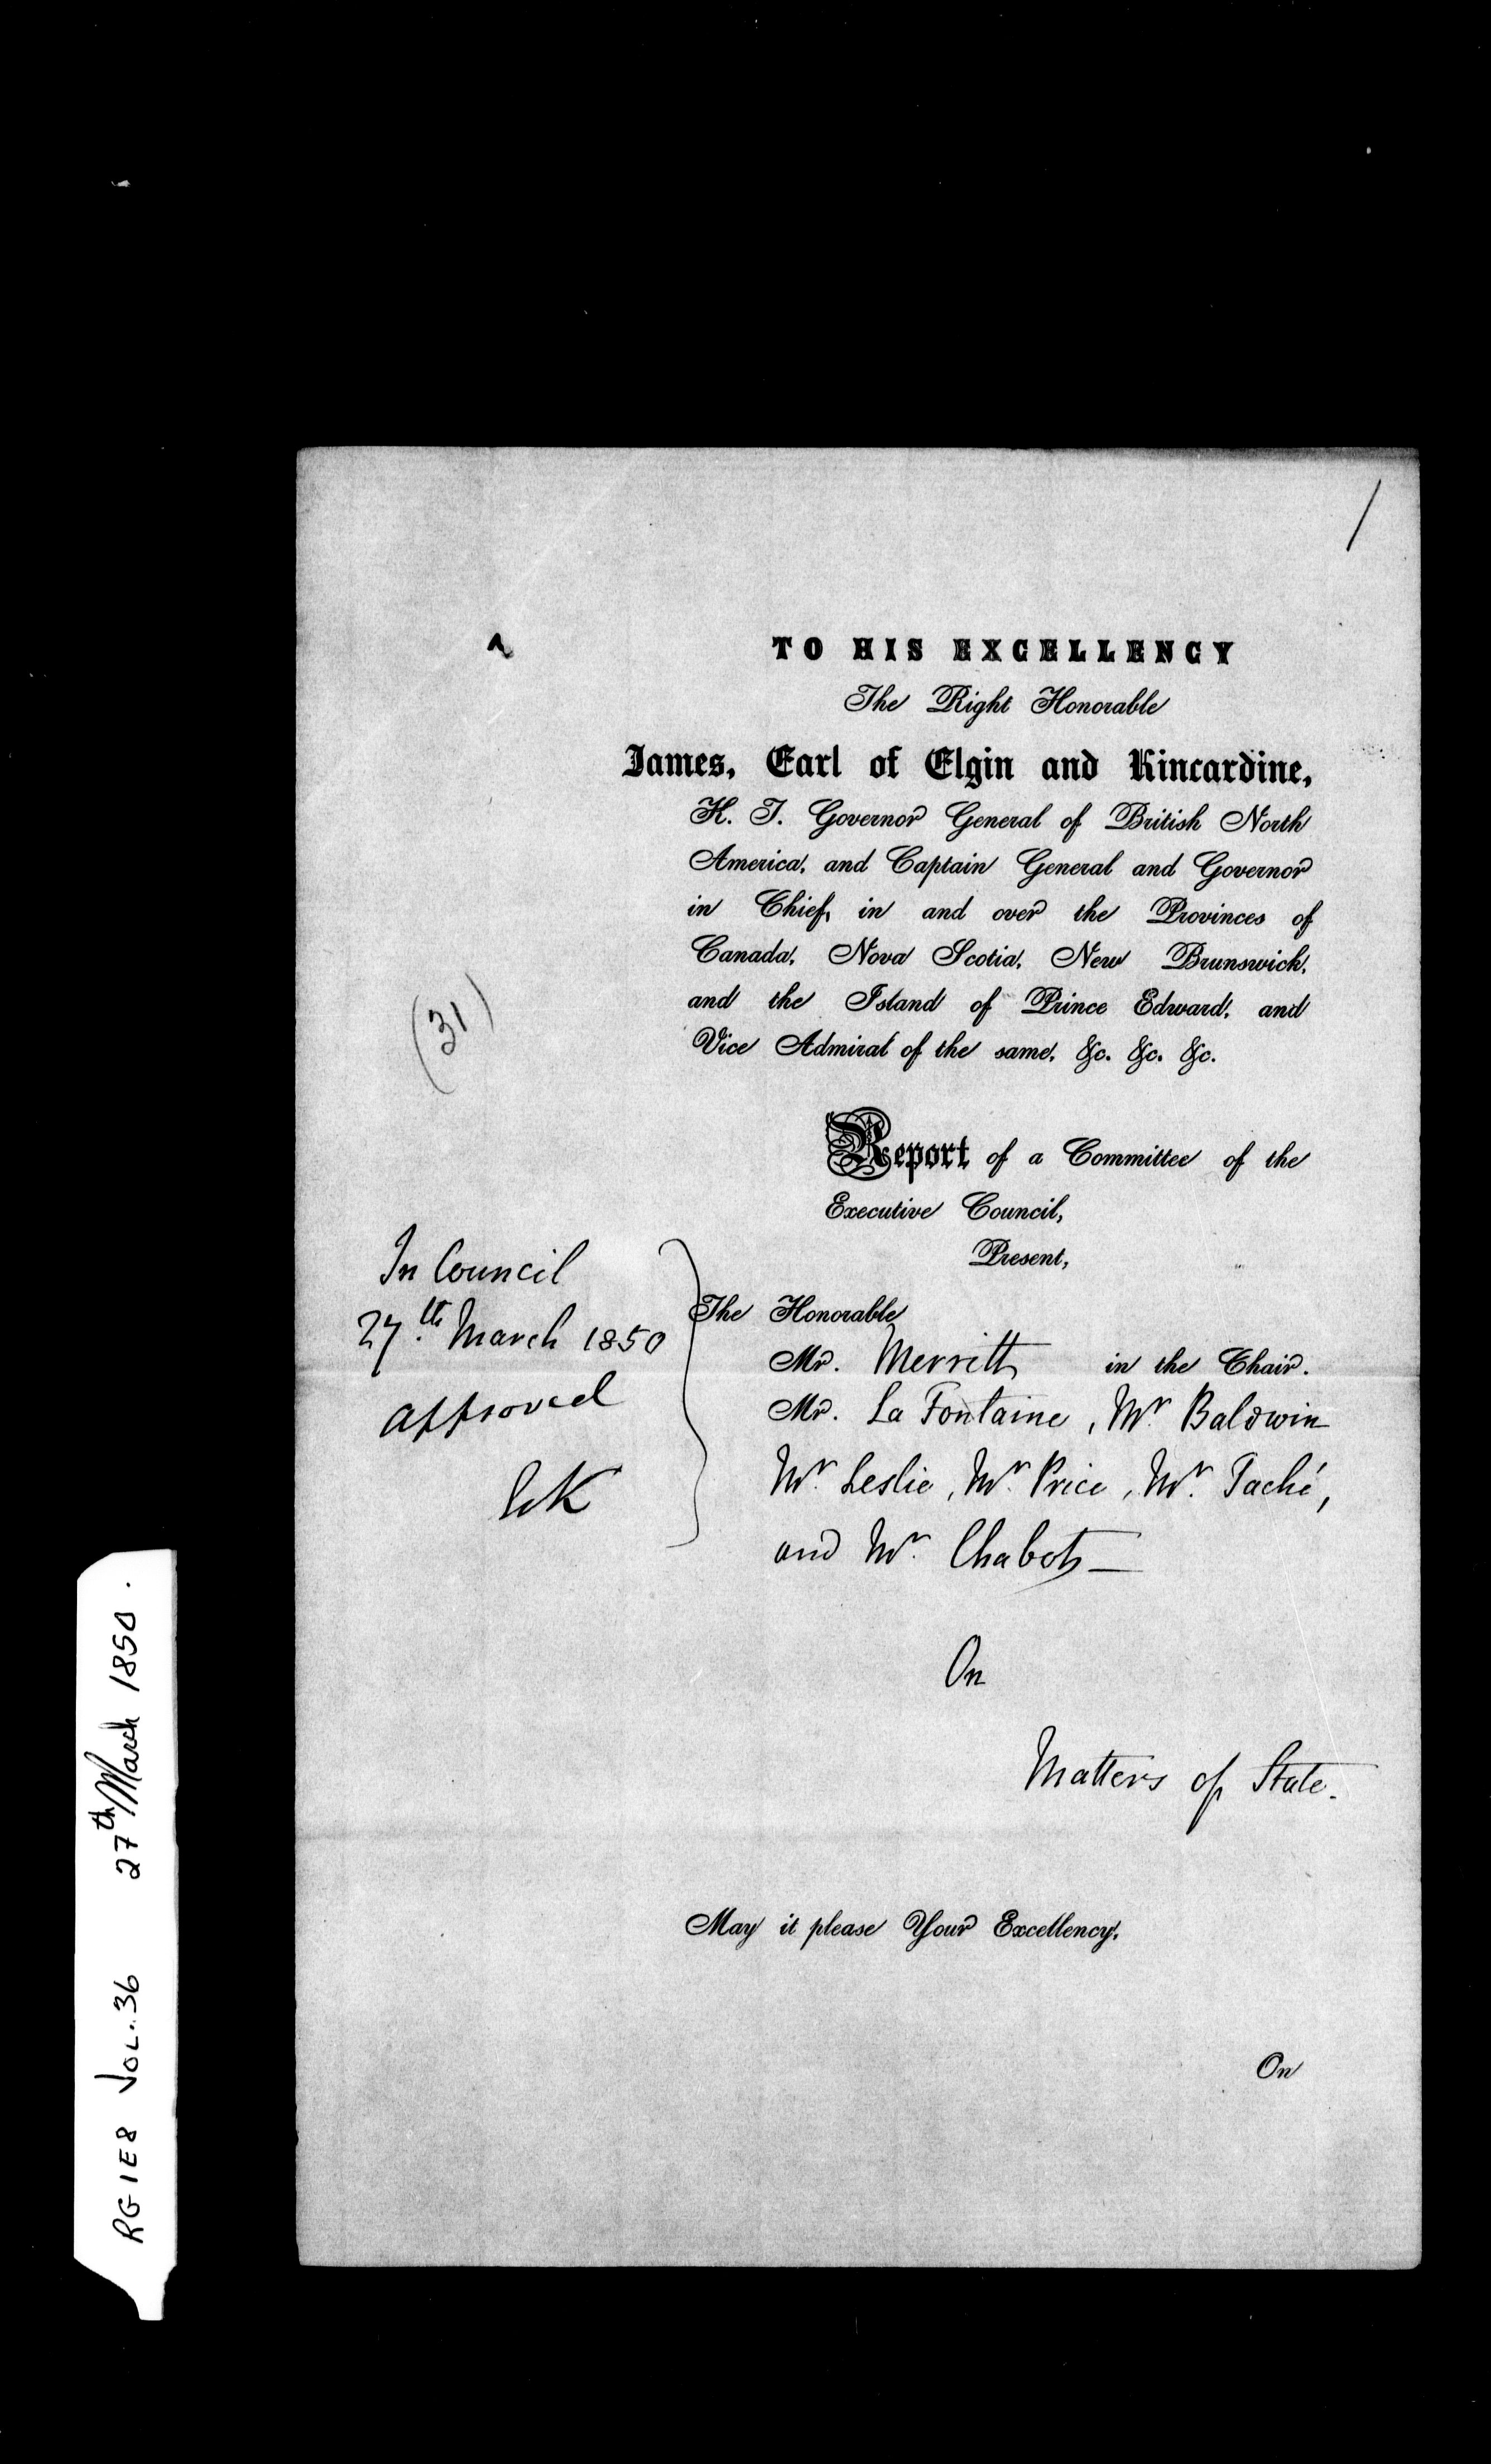 /
TO HIS EXCELLENCY
The Right Honorable
James, Earl of Elgin and Kincardine,
K. T. Governor General of British North
America, and Captain General and Governor
in Chief, in and over the Provinces of
Canada, Nova Scotia, New Brunswick,
and the Island of Prince Edward, and
Vice Admiral of the same, &c. &c. &c.
(31)
Report of a Committee of the
Executive Council,
Present,
In Council
27th March 1850
approved
E&K
The Honorable
Mr. Merritt in the Chair.
Mr. La Fontaine, Mr Baldwin
Mr. Leslie, Mr. Price, Mr. Taché,
and Mr. Chabot—
On
Matters of State.
May it please Your Excellency,
On
RG 1 E 8 VOL. 36 27th March 1850.